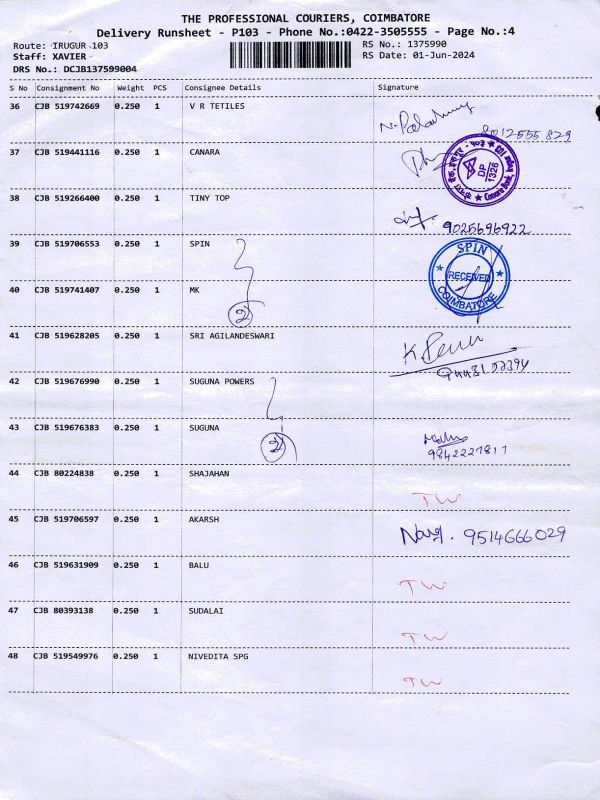 THE PROFESSIONAL COURIERS, COIMBATORE
Delivery Runsheet - P103 - Phone No.:0422-3505555 - Page No.:4
Route: IRUGUR 103 RS No.: 1375990
Staff: XAVIER RS Date: 01-Jun-2024
DRS No.: DCJB137599004
S No Consignment No Weight PCS Consignee Details Signature
36 CJB 519742669 0.250 1 V R TETILES
8012555 829
37 CJB 519441116 0.250 1 CANARA
DP 1326 Canara Bank
38 CJB 519266400 0.250 1 TINY TOP
9025696922
39 CJB 519706553 0.250 1 SPIN
SPIN RECEIVED COIMBATORE
40 CJB 519741407 0.250 1 MK
2
41 CJB 519628205 0.250 1 SRI AGILANDESWARI
42 CJB 519676990 0.250 1 SUGUNA POWERS
43 CJB 519676383 0.250 1 SUGUNA
2
44 CJB 80224838 0.250 1 SHAJAHAN
TW
45 CJB 519706597 0.250 1 AKARSH
9514666029
46 CJB 519631909 0.250 1 BALU
TW
47 CJB 80393138 0.250 1 SUDALAI
TW
48 CJB 519549976 0.250 1 NIVEDITA SPG
TW